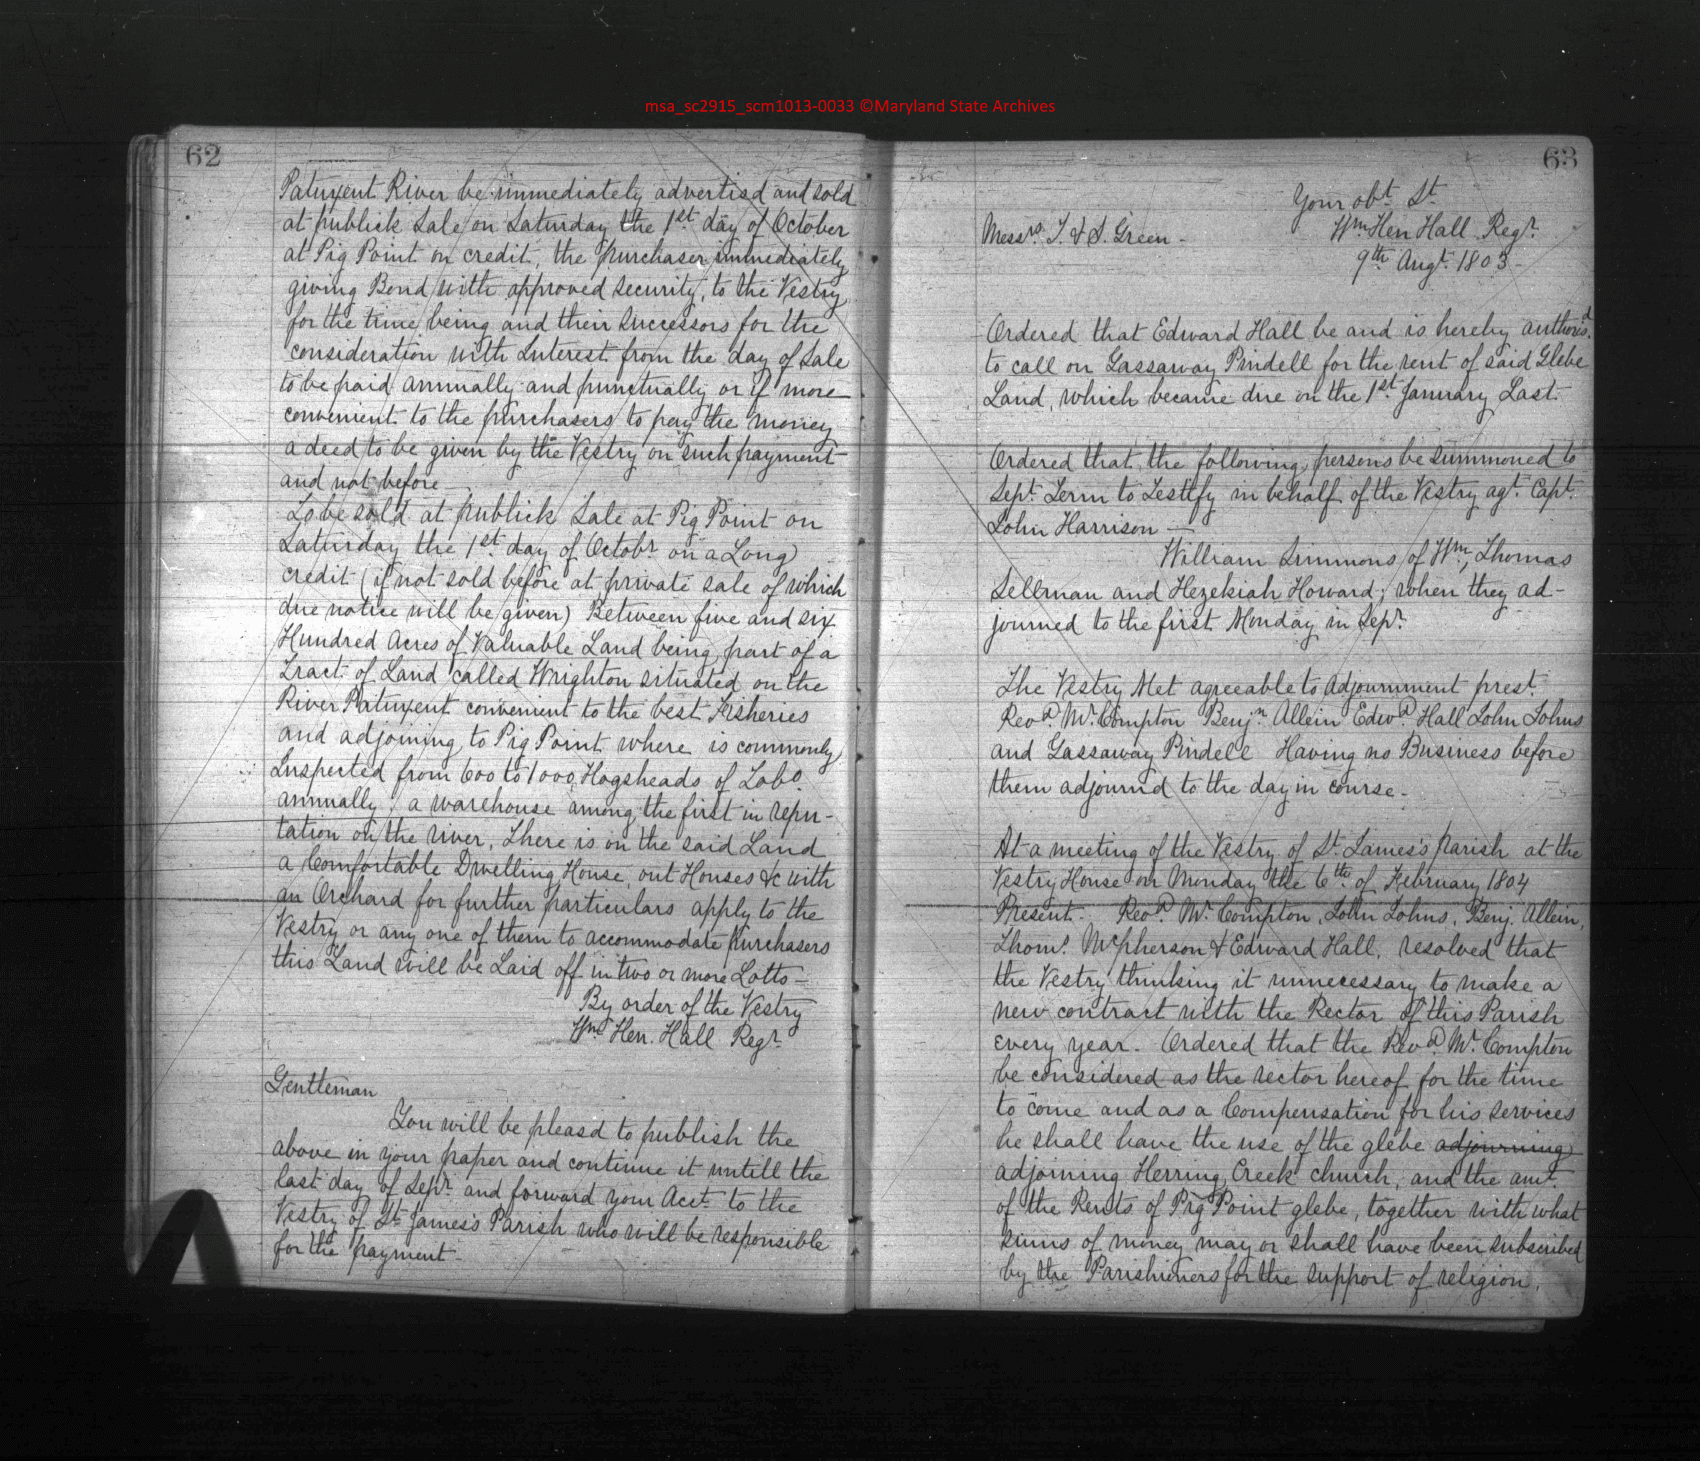 msa_sc2915_scm1013-0033 ©Maryland State Archives
62
Patuxent River be immediately advertisd and sold
at publick Sale on Saturday the 1st day of October
at Pig Point on credit, the purchaser immediately
giving Bond with approved security, to the Vestry
for the time being and their successors for the
consideration with Interest from the day of Sale
to be paid annually and punctually or if more
convenient to the purchasers to pay the money
a deed to be given by the Vestry on such payment
and not before
To be sold at publick Sale at Pig Point on
Saturday the 1st day of Octobr on a Long
credit (if not sold before at private sale of which
due notice will be given) Between five and six
Hundred Acres of Valuable Land being part of a
Tract of Land called Wrighton situated on the
River Patuxent convenient to the best Fisheries
and adjoining to Pig Point where is commonly
Inspected from 600 to 1000 Hogsheads of Tobo
annually; a warehouse among the first in repu-
tation on the river, There is on the said Land
a Comfortable Dwelling House, out Houses &c with
an Orchard for further particulars apply to the
Vestry or any one of them to accommodate purchasers
this Land will be Laid off in two or more Lotts—
By order of the Vestry
Wm Hen. Hall Regr.
Gentleman
You will be pleasd to publish the
above in your paper and continue it untill the
last day of Sepr and forward your Acct to the
Vestry of St James's Parish who will be responsible
for the payment—
63
Your obt St
Messrs T. & S. Green - Wm Hen Hall Regr.
9th Augt 1803—
Ordered that Edward Hall be and is hereby authorisd
to call on Gassaway Pindell for the rent of said Glebe
Land, which became due on the 1st January Last
Ordered that the following persons be summoned to
Sept Term to Testify in behalf of the Vestry agt Capt.
John Harrison—
William Simmons of Wm, Thomas
Sellman and Hezekiah Howard; when they ad-
journed to the first Monday in Sepr.
The Vestry Met agreeable to adjournment prest.
Revd Mr Compton Benjn Allein Edwd Hall John Johns
and Gassaway Pindell Having no Business before
them adjournd to the day in course -
At a meeting of the Vestry of St James's parish at the
Vestry House on Monday the 6th of February 1804
Present - Revd Mr Compton, John Johns, Benj. Allein,
Thoms. Mcpherson & Edward Hall, resolved that
the Vestry thinking it unnecessary to make a
new contract with the Rector of this Parish
every year - Ordered that the Revd Mr Compton
be considered as the rector hereof for the time
to come and as a Compensation for his services
he shall have the use of the glebe adjourning
adjoining Herring Creek church, and the amt.
of the Rents of Pig Point glebe, together with what
sums of money may or shall have been subscribed
by the Parishioners for the support of religion.